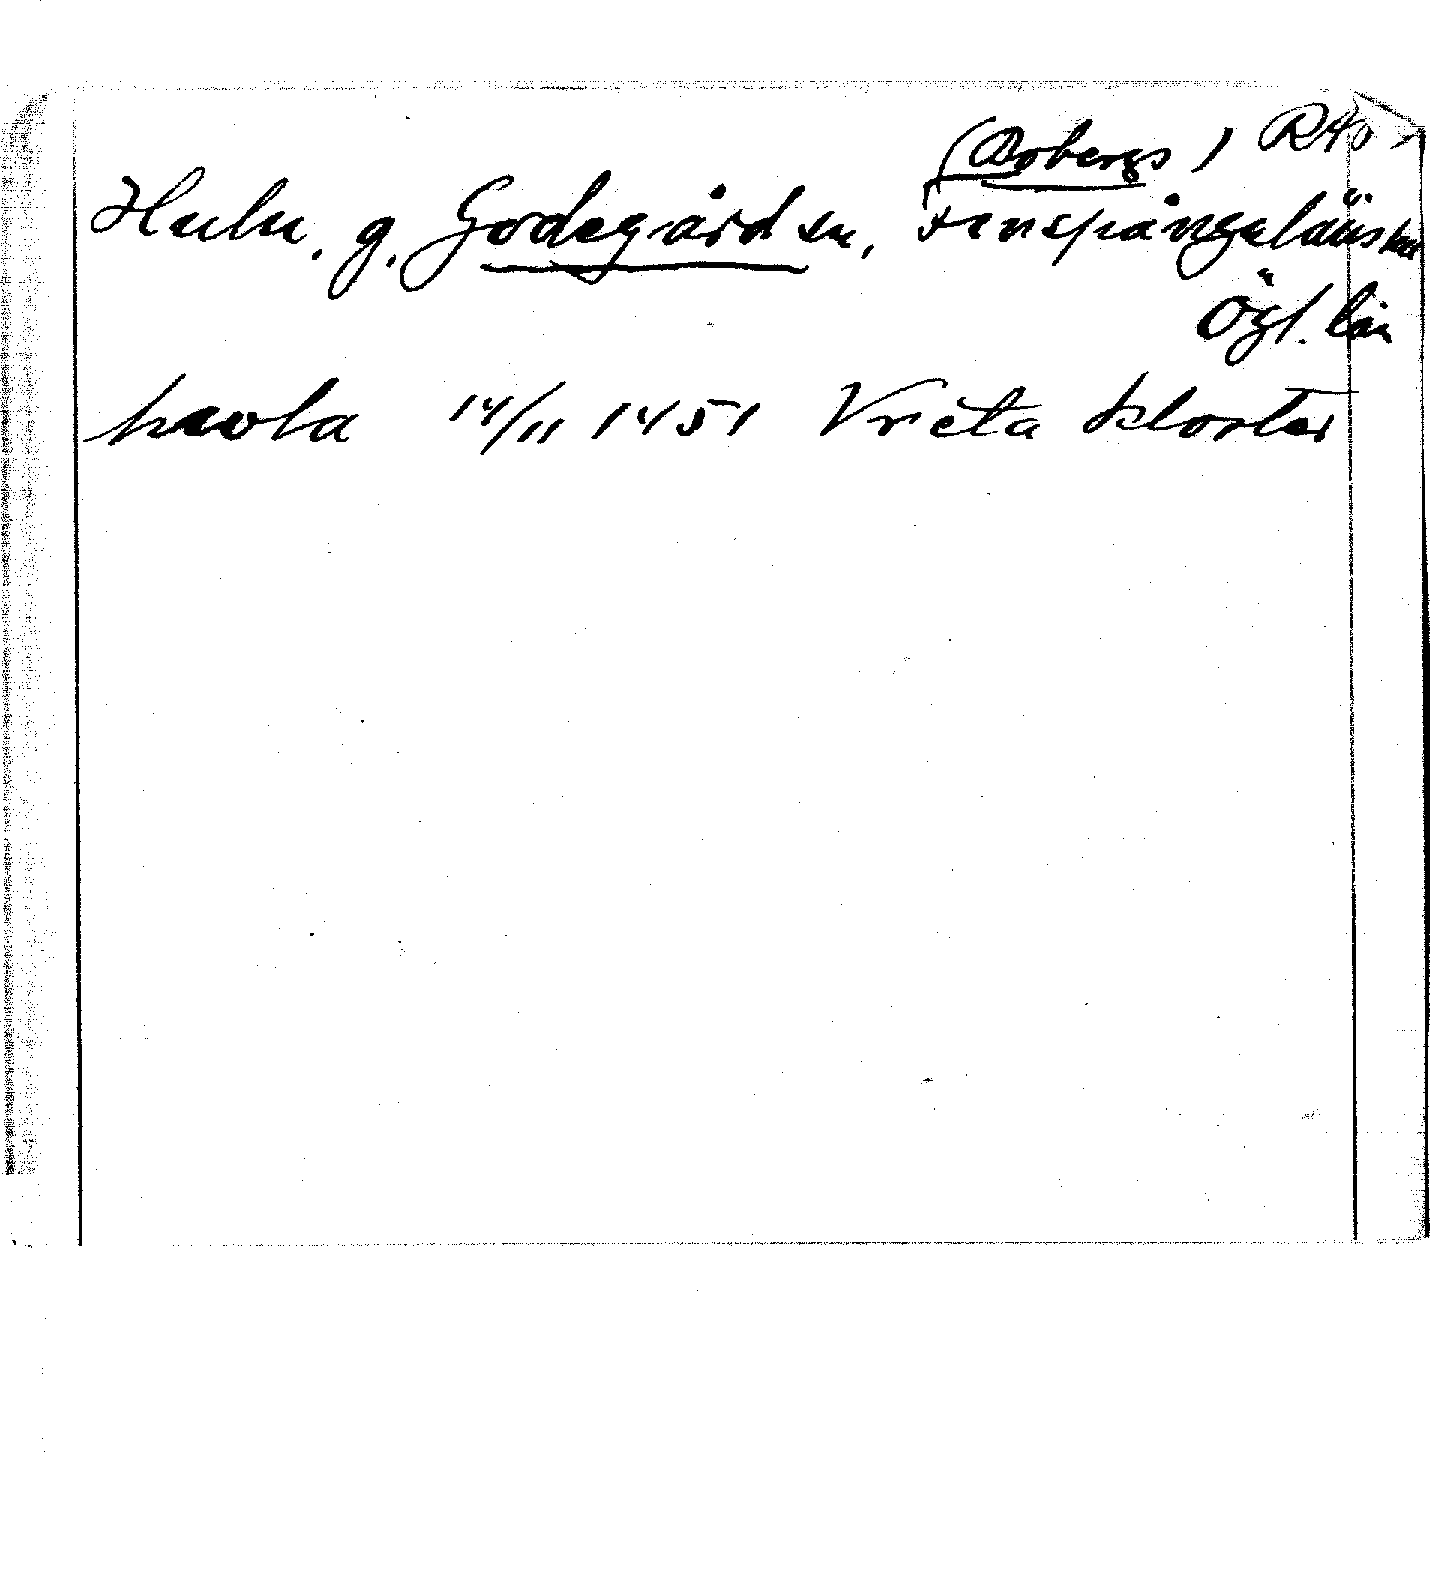 (Bobergs) RAp
Hulu, g, Godegård sn, Finspångaläns hd
Ögl. län
hwla 14/11 1451 Vreta kloster